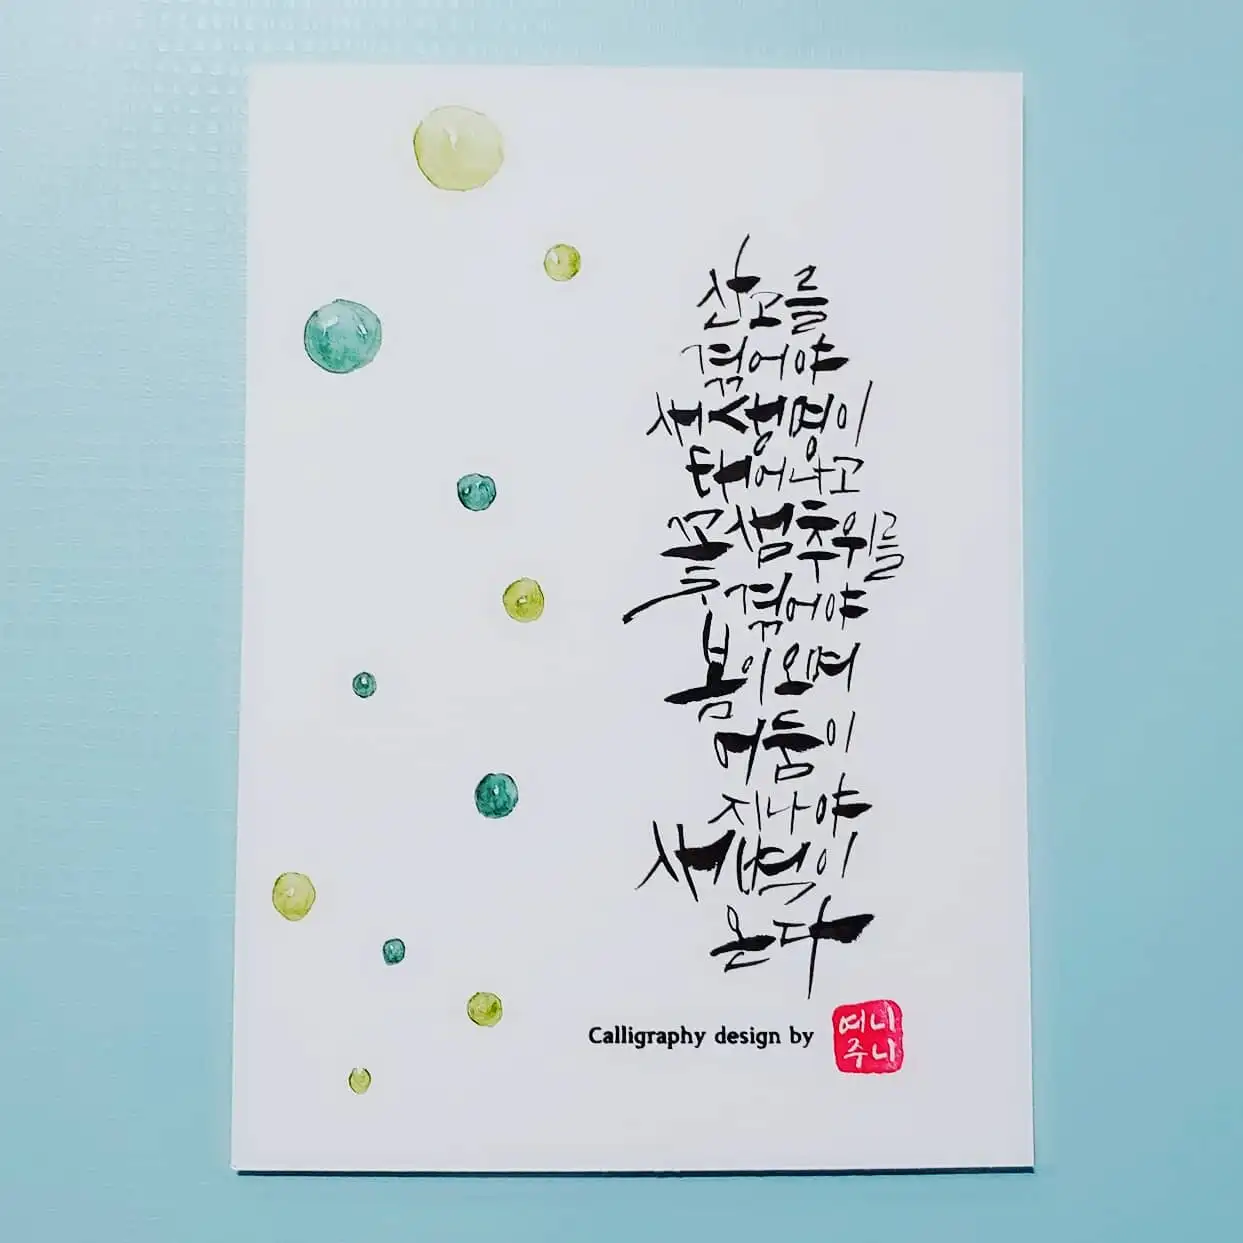 산고를
겪어야
새생명이
태어나고
꽃샘추위를
겪어야
봄이오며
어둠이
지나야
새벽이
온다
Calligraphy design by
여니
주니